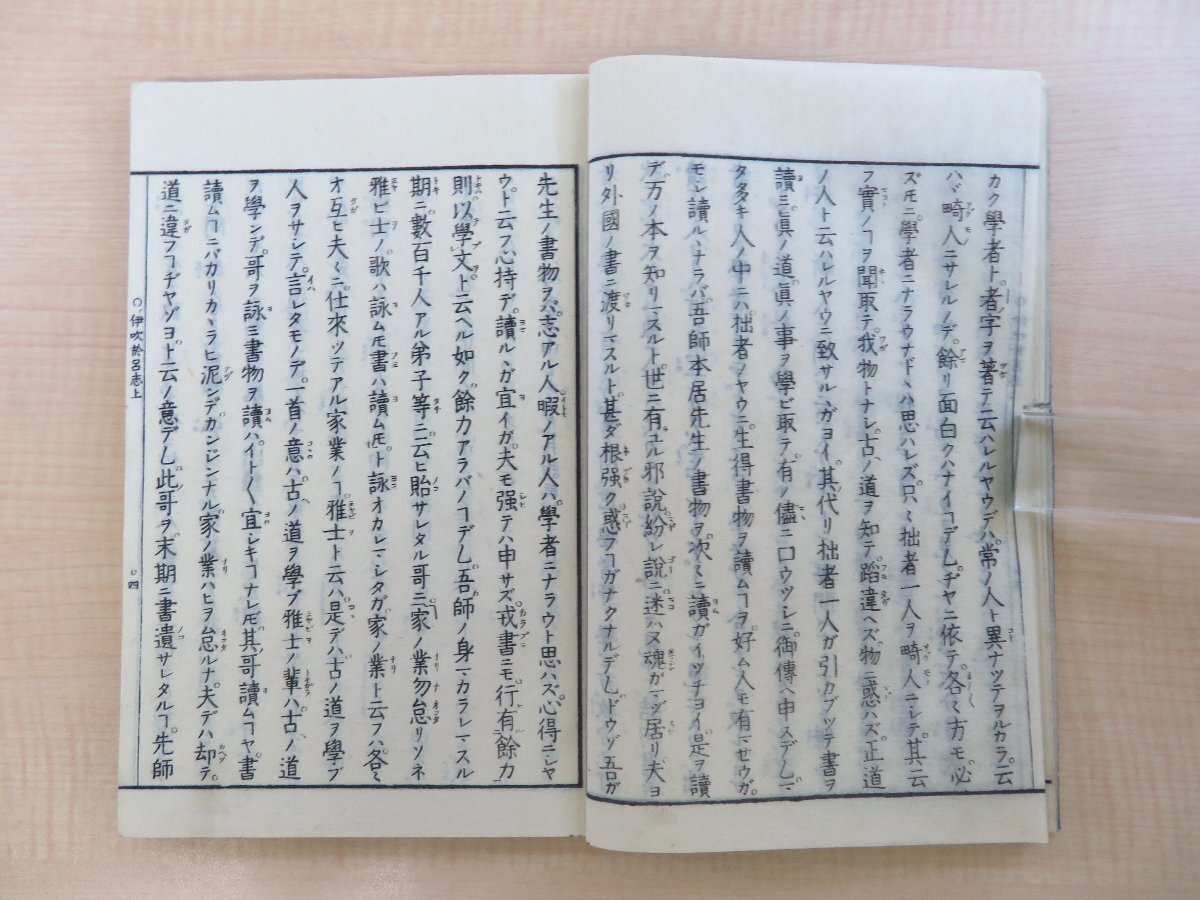 カク學者ト者字ヲ著テ云ハレルヤウデハ常ノ人ト異ナツテヲルカラ云
ハヾ畸人ニサレルノデ餘リ面白クハナイヿデムヂヤニ依テ各〻方モ必
ズモニ學者ニナラウナドヽハ思ハレズ只〻拙者一人ヲ畸人ニシテ其云
フ實ノヿヲ聞取テ我物トナシ古ノ道ヲ知テ蹈違ヘズ物ニ惑ハズ正道
ノ人ト云ハレルヤウニ致サルヽガヨイ其代リ拙者一人ガ引カブツテ書ヲ
讀ミ眞ノ道眞ノ事ヲ學ビ取テ有ノ儘ニ口ウツシニ御傳ヘ申スデム
タ多キ人ノ中ニハ拙者ノヤウニ生得書物ヲ讀ムヿヲ好ム人モ有ませウガ
モシ讀ルヽナラバ吾師本居先生ノ書物ヲ次〻ニ讀ガイツチヨイ是ヲ讀
デ万ノ本ヲ知リマスルト世ニ有ユル邪說紛レ說ニ迷ハヌ魂ガマヅ居リ夫ヨ
リ外國ノ書ニ渡リマスルト甚ダ根强ク惑フヿガナクナルデムドウゾ吾ガ
先生ノ書物ヲバ志アル人暇ノアル人ハ學者ニナラウト思ハズ心得ニシヤ
ウト云フ心持デ讀ルヽガ宜イガ夫モ强テハ申サズ戎書ニモ行有餘力
則以學文ト云ヘル如ク餘力アラバノヿデム吾師ノ身マカラレマスル
期ニ數百千人アル弟子等ニ云ヒ貽サレタル哥ニ家ノ業勿怠リソネ
雅ビ士ノ歌ハ詠ムモ書ハ讀ムモト詠オカレマシタガ家ノ業ト云フハ各〻
オ互ヒ夫〻ニ仕來ツテアル家業ノヿ雅士ト云ハ是デハ古ノ道ヲ學ブ
人ヲサシテ言レタモノデ一首ノ意ハ古ノ道ヲ學ブ雅士ノ輩ハ古ノ道
ヲ學ンデ哥ヲ詠ミ書物ヲ讀ハイト〱宜シキヿナレモ其哥讀ムヿヤ書
讀ムヿニバカリカヽラヒ泥ンデカンジンナル家ノ業ハヒヲ怠ルナ夫デハ却テ
道ニ違フヿヂヤゾヨト云ノ意デム此哥ヲ末期ニ書遺サレタルヿ先師
○伊吹於呂志上
○四